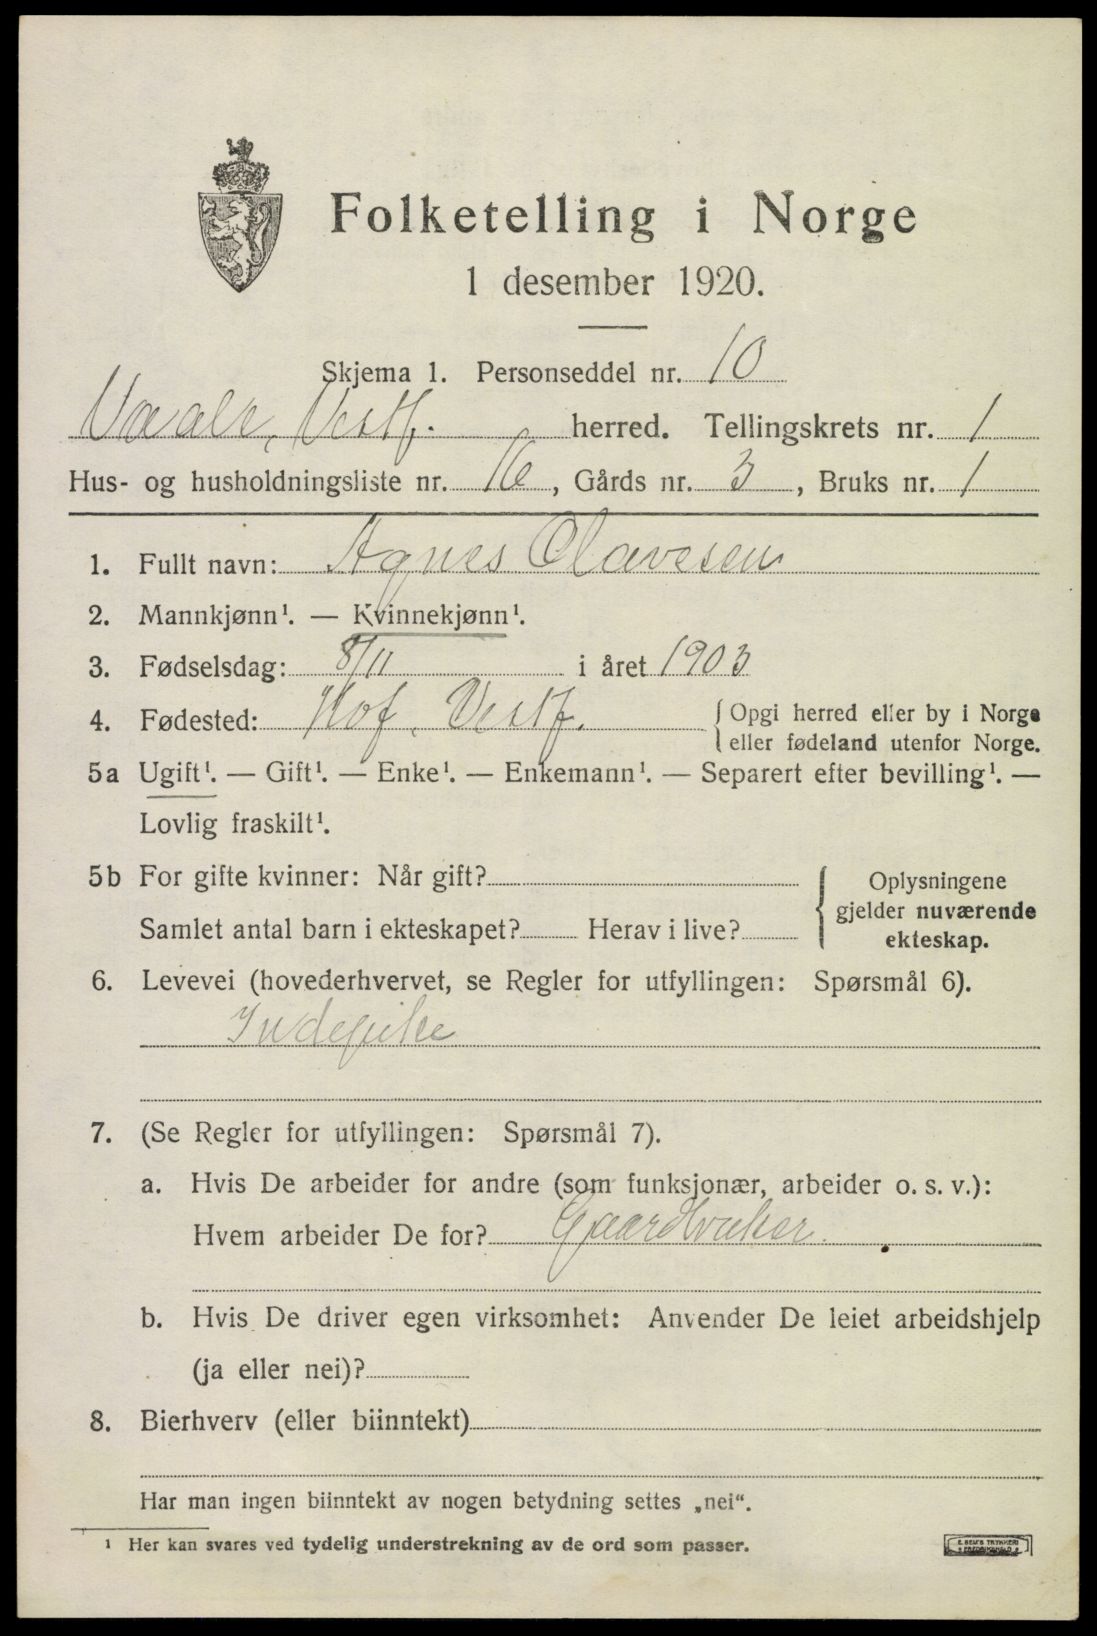 Folketelling i Norge
1 desember 1920.
Skjema 1. Personseddel nr. 10
Vaale, Vestf. herred. Tellingskrets nr. 1
Hus- og husholdningsliste nr. 16, Gårds nr. 3, Bruks nr. 1
1. Fullt navn: Agnes Olavesen
2. Mannkjønn¹. — Kvinnekjønn¹.
3. Fødselsdag: 8/11 i året 1903
4. Fødested: Hof, Vestf. { Opgi herred eller by i Norge
eller fødeland utenfor Norge.
5a Ugift¹. — Gift¹. — Enke¹. — Enkemann¹. — Separert efter bevilling¹. —
Lovlig fraskilt¹.
5b For gifte kvinner: Når gift? { Oplysningene
gjelder nuværende
Samlet antal barn i ekteskapet? Herav i live? ekteskap.
6. Levevei (hovederhvervet, se Regler for utfyllingen: Spørsmål 6).
Indepike
7. (Se Regler for utfyllingen: Spørsmål 7).
a. Hvis De arbeider for andre (som funksjonær, arbeider o. s. v.):
Hvem arbeider De for? Gaardbruker.
b. Hvis De driver egen virksomhet: Anvender De leiet arbeidshjelp
(ja eller nei)?
8. Bierhverv (eller biinntekt)
Har man ingen biinntekt av nogen betydning settes „nei“.
¹ Her kan svares ved tydelig understrekning av de ord som passer.
E. SEM'S TRYKKERI
FREDRIKSHALD